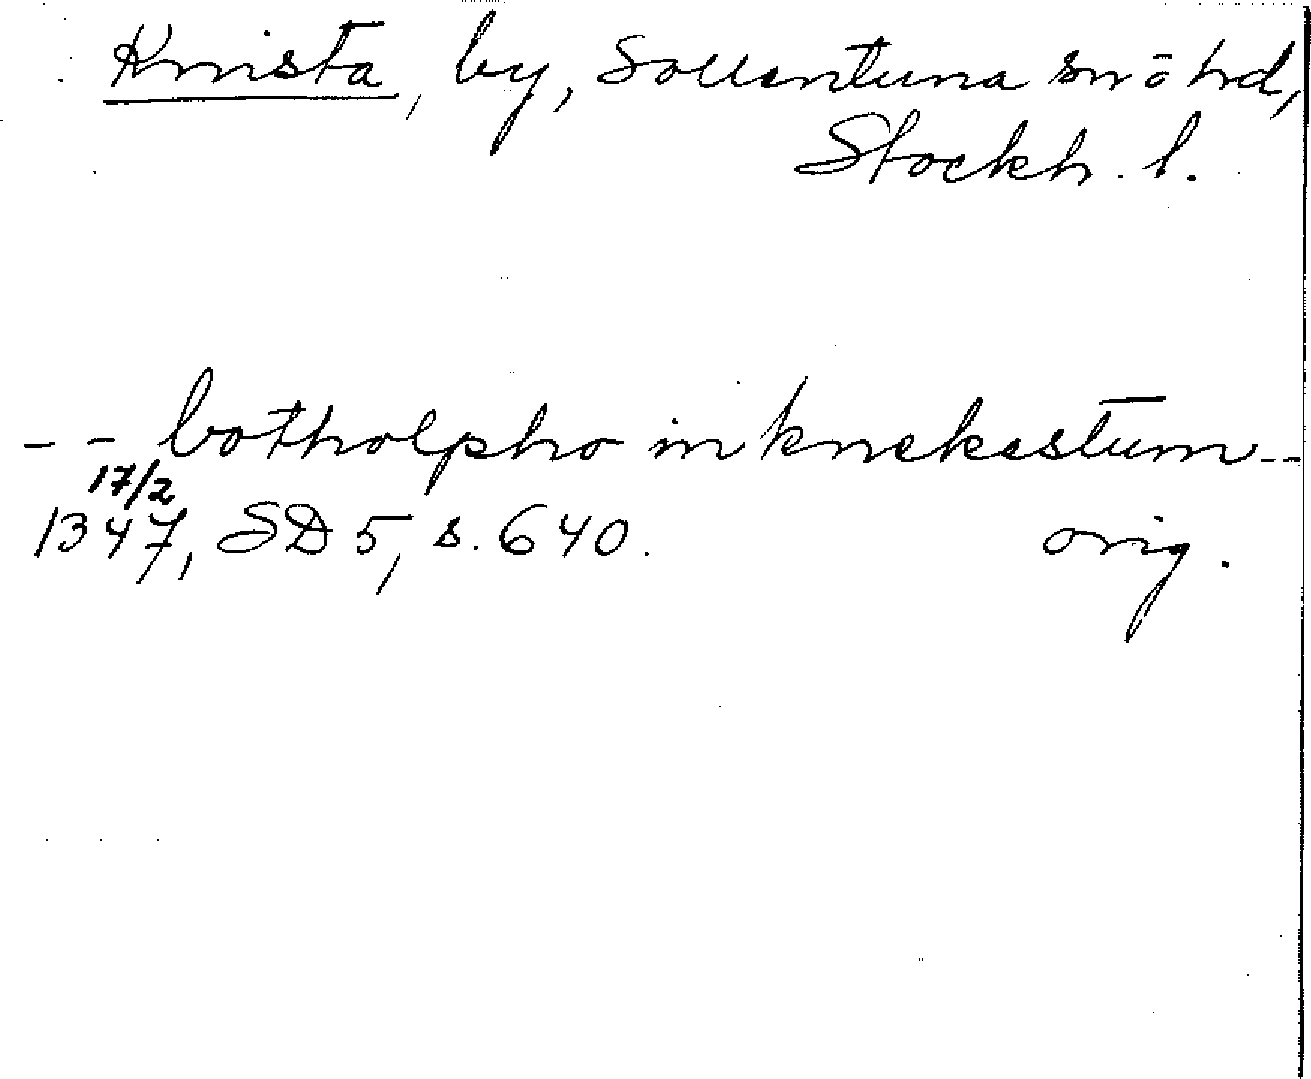 Knista, by, Sollentuna sn ō hd,
Stockh. l.
-- botholpho in knekestum --
17/2
1347, SD 5, s. 640. orig.